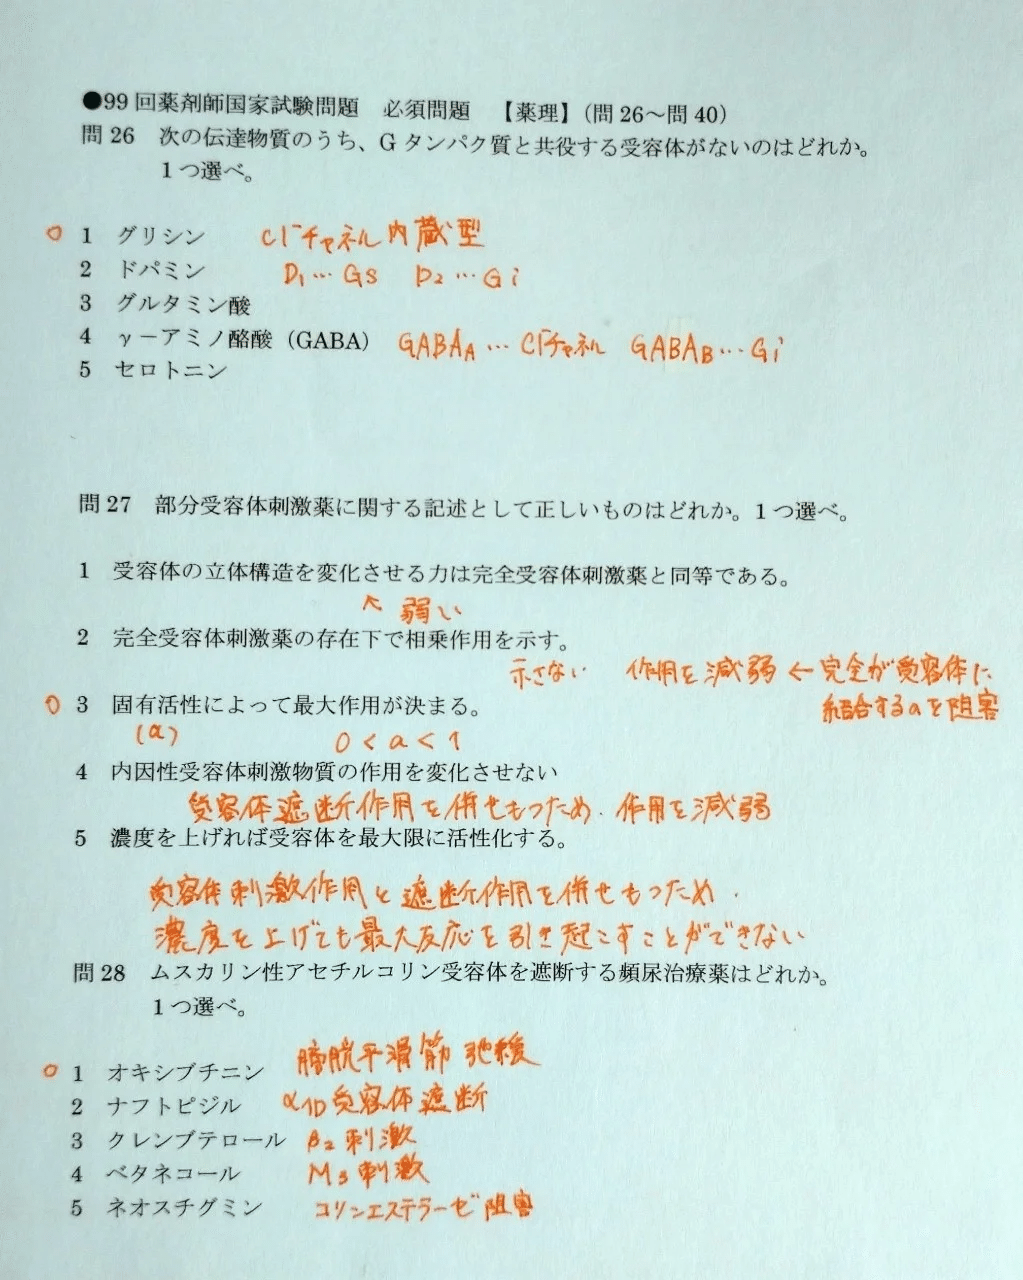 ●99回薬剤師国家試験問題　必須問題　【薬理】（問26～問40）
問26　次の伝達物質のうち、Gタンパク質と共役する受容体がないのはどれか。
1つ選べ。
○ 1　グリシン　Cl⁻チャネル内蔵型
2　ドパミン　D₁…Gs　D₂…Gi
3　グルタミン酸
4　γ－アミノ酪酸（GABA）　GABAA…Cl⁻チャネル　GABAB…Gi
5　セロトニン
問27　部分受容体刺激薬に関する記述として正しいものはどれか。1つ選べ。
1　受容体の立体構造を変化させる力は完全受容体刺激薬と同等である。
↖ 弱い
2　完全受容体刺激薬の存在下で相乗作用を示す。
示さない　作用を減弱 ← 完全が受容体に
結合するのを阻害
○ 3　固有活性によって最大作用が決まる。
(α)　0 < α < 1
4　内因性受容体刺激物質の作用を変化させない
受容体遮断作用を併せもつため．作用を減弱
5　濃度を上げれば受容体を最大限に活性化する。
受容体刺激作用と遮断作用を併せもつため．
濃度を上げても最大反応を引き起こすことができない
問28　ムスカリン性アセチルコリン受容体を遮断する頻尿治療薬はどれか。
1つ選べ。
○ 1　オキシブチニン　膀胱平滑筋弛緩
2　ナフトピジル　α1D受容体遮断
3　クレンブテロール　β₂刺激
4　ベタネコール　M₃刺激
5　ネオスチグミン　コリンエステラーゼ阻害